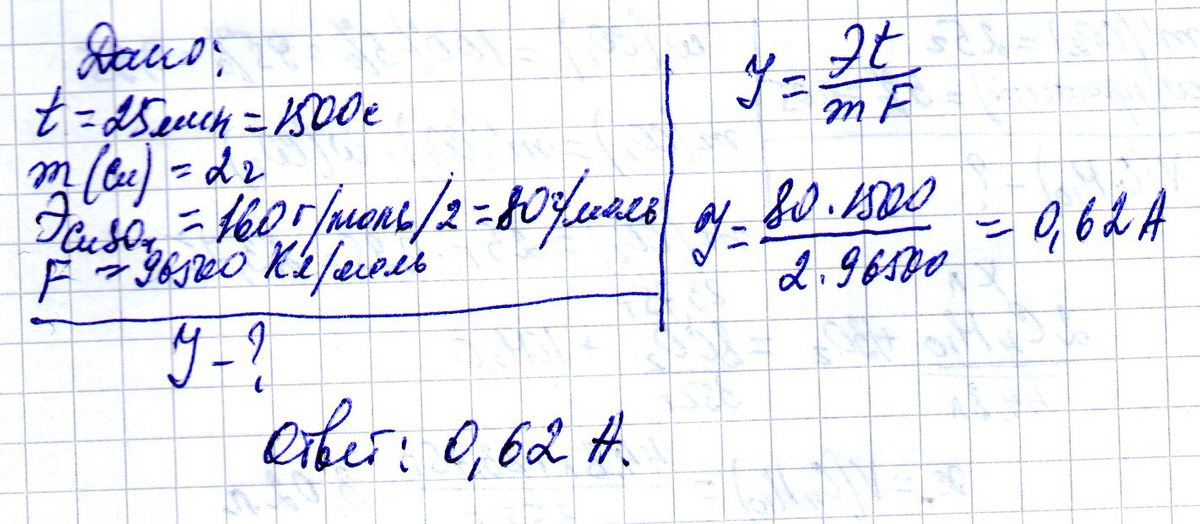 Дано:
t = 25 мин = 1500 с
m (Cu) = 2 г
Э CuSO₄ = 160 г/моль/2 = 80 г/моль
F = 96500 Кл/моль
J - ?
J = Эt / mF
J = 80 · 1500 / 2 · 96500 = 0,62 А
Ответ: 0,62 А.